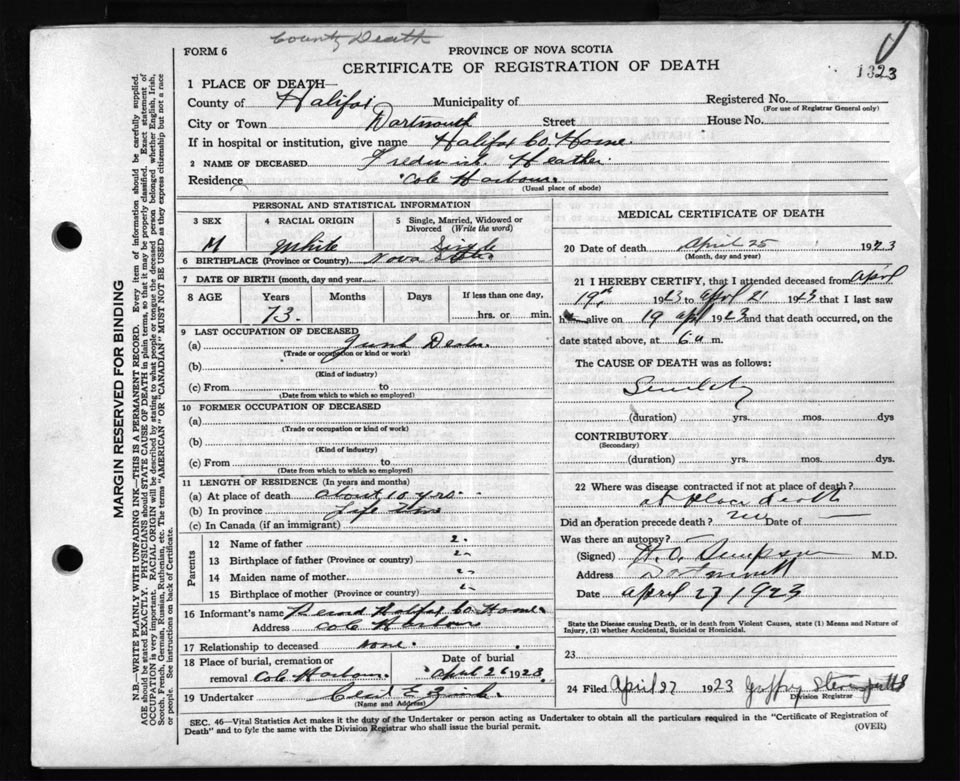 County Death
FORM 6
PROVINCE OF NOVA SCOTIA
CERTIFICATE OF REGISTRATION OF DEATH
1323
1 PLACE OF DEATH—
County of Halifax Municipality of Registered No.
(For use of Registrar General only)
City or Town Dartmouth Street House No.
If in hospital or institution, give name Halifax Co. Home.
2 NAME OF DECEASED Frederick Heather.
Residence Cole Harbour.
(Usual place of abode)
PERSONAL AND STATISTICAL INFORMATION
3 SEX 4 RACIAL ORIGIN 5 Single, Married, Widowed or Divorced (Write the word)
M White Single
6 BIRTHPLACE (Province or Country) Nova Scotia
7 DATE OF BIRTH (month, day and year)
8 AGE Years Months Days If less than one day,
73. hrs. or min.
9 LAST OCCUPATION OF DECEASED
(a) Junk Dealer.
(Trade or occupation or kind or work)
(b)
(Kind of industry)
(c) From to
(Date from which to which so employed)
10 FORMER OCCUPATION OF DECEASED
(a)
(Trade or occupation or kind of work)
(b)
(Kind of industry)
(c) From to
(Date from which to which so employed)
11 LENGTH OF RESIDENCE (In years and months)
(a) At place of death about 10 yrs.
(b) In province Life time
(c) In Canada (if an immigrant)
Parents
12 Name of father
13 Birthplace of father (Province or country)
14 Maiden name of mother
15 Birthplace of mother (Province or country)
16 Informant's name Halifax Co. Home.
Address Cole Harbour
17 Relationship to deceased none.
18 Place of burial, cremation or removal Cole Harbour. Date of burial April 26 1923.
19 Undertaker Cecil E. Zink.
(Name and Address)
MEDICAL CERTIFICATE OF DEATH
20 Date of death April 25 1923
(Month, day and year)
21 I HEREBY CERTIFY, that I attended deceased from April
19th 1923 to April 21 1923 that I last saw
h alive on 19 apl 1923 and that death occurred, on the
date stated above, at 6 a m.
The CAUSE OF DEATH was as follows:
Senility
(duration) yrs. mos. dys
CONTRIBUTORY
(Secondary)
(duration) yrs. mos. dys
22 Where was disease contracted if not at place of death?
at place death
Did an operation precede death? no Date of —
Was there an autopsy? —
(Signed) Simpson M.D.
Address Dartmouth
Date April 27 1923
State the Disease causing Death, or in death from Violent Causes, state (1) Means and Nature of Injury, (2) whether Accidental, Suicidal or Homicidal.
23
24 Filed April 27 1923
Division Registrar
SEC. 46—Vital Statistics Act makes it the duty of the Undertaker or person acting as Undertaker to obtain all the particulars required in the "Certificate of Registration of
Death" and to fyle the same with the Division Registrar who shall issue the burial permit. (OVER)
MARGIN RESERVED FOR BINDING
N.B.—WRITE PLAINLY WITH UNFADING INK—THIS IS A PERMANENT RECORD. Every item of information should be carefully supplied.
AGE should be stated EXACTLY. PHYSICIANS should STATE CAUSE OF DEATH in plain terms, so that it may be properly classified. Exact statement of
OCCUPATION is very important. RACIAL ORIGIN will be described by stating to what people or tongue the deceased person belonged, whether English, Irish,
Scotch, French, German, Russian, Ruthenian, etc. The terms "AMERICAN" OR "CANADIAN" MUST NOT BE USED as they express citizenship but not a race
or people. See instructions on back of Certificate.